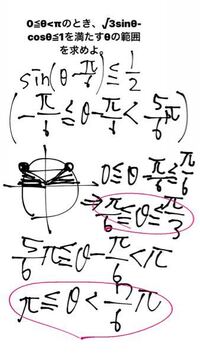 0≦θ<πのとき、√3sinθ-
cosθ≦1を満たすθの範囲
を求めよ。
sin(θ-π/6)≦1/2
(-π/6≦θ-π/6<5/6π)
0≦θ-π/6≦π/6
⇒π/6≦θ≦π/3
5/6π≦θ-π/6<π
π≦θ<7/6π